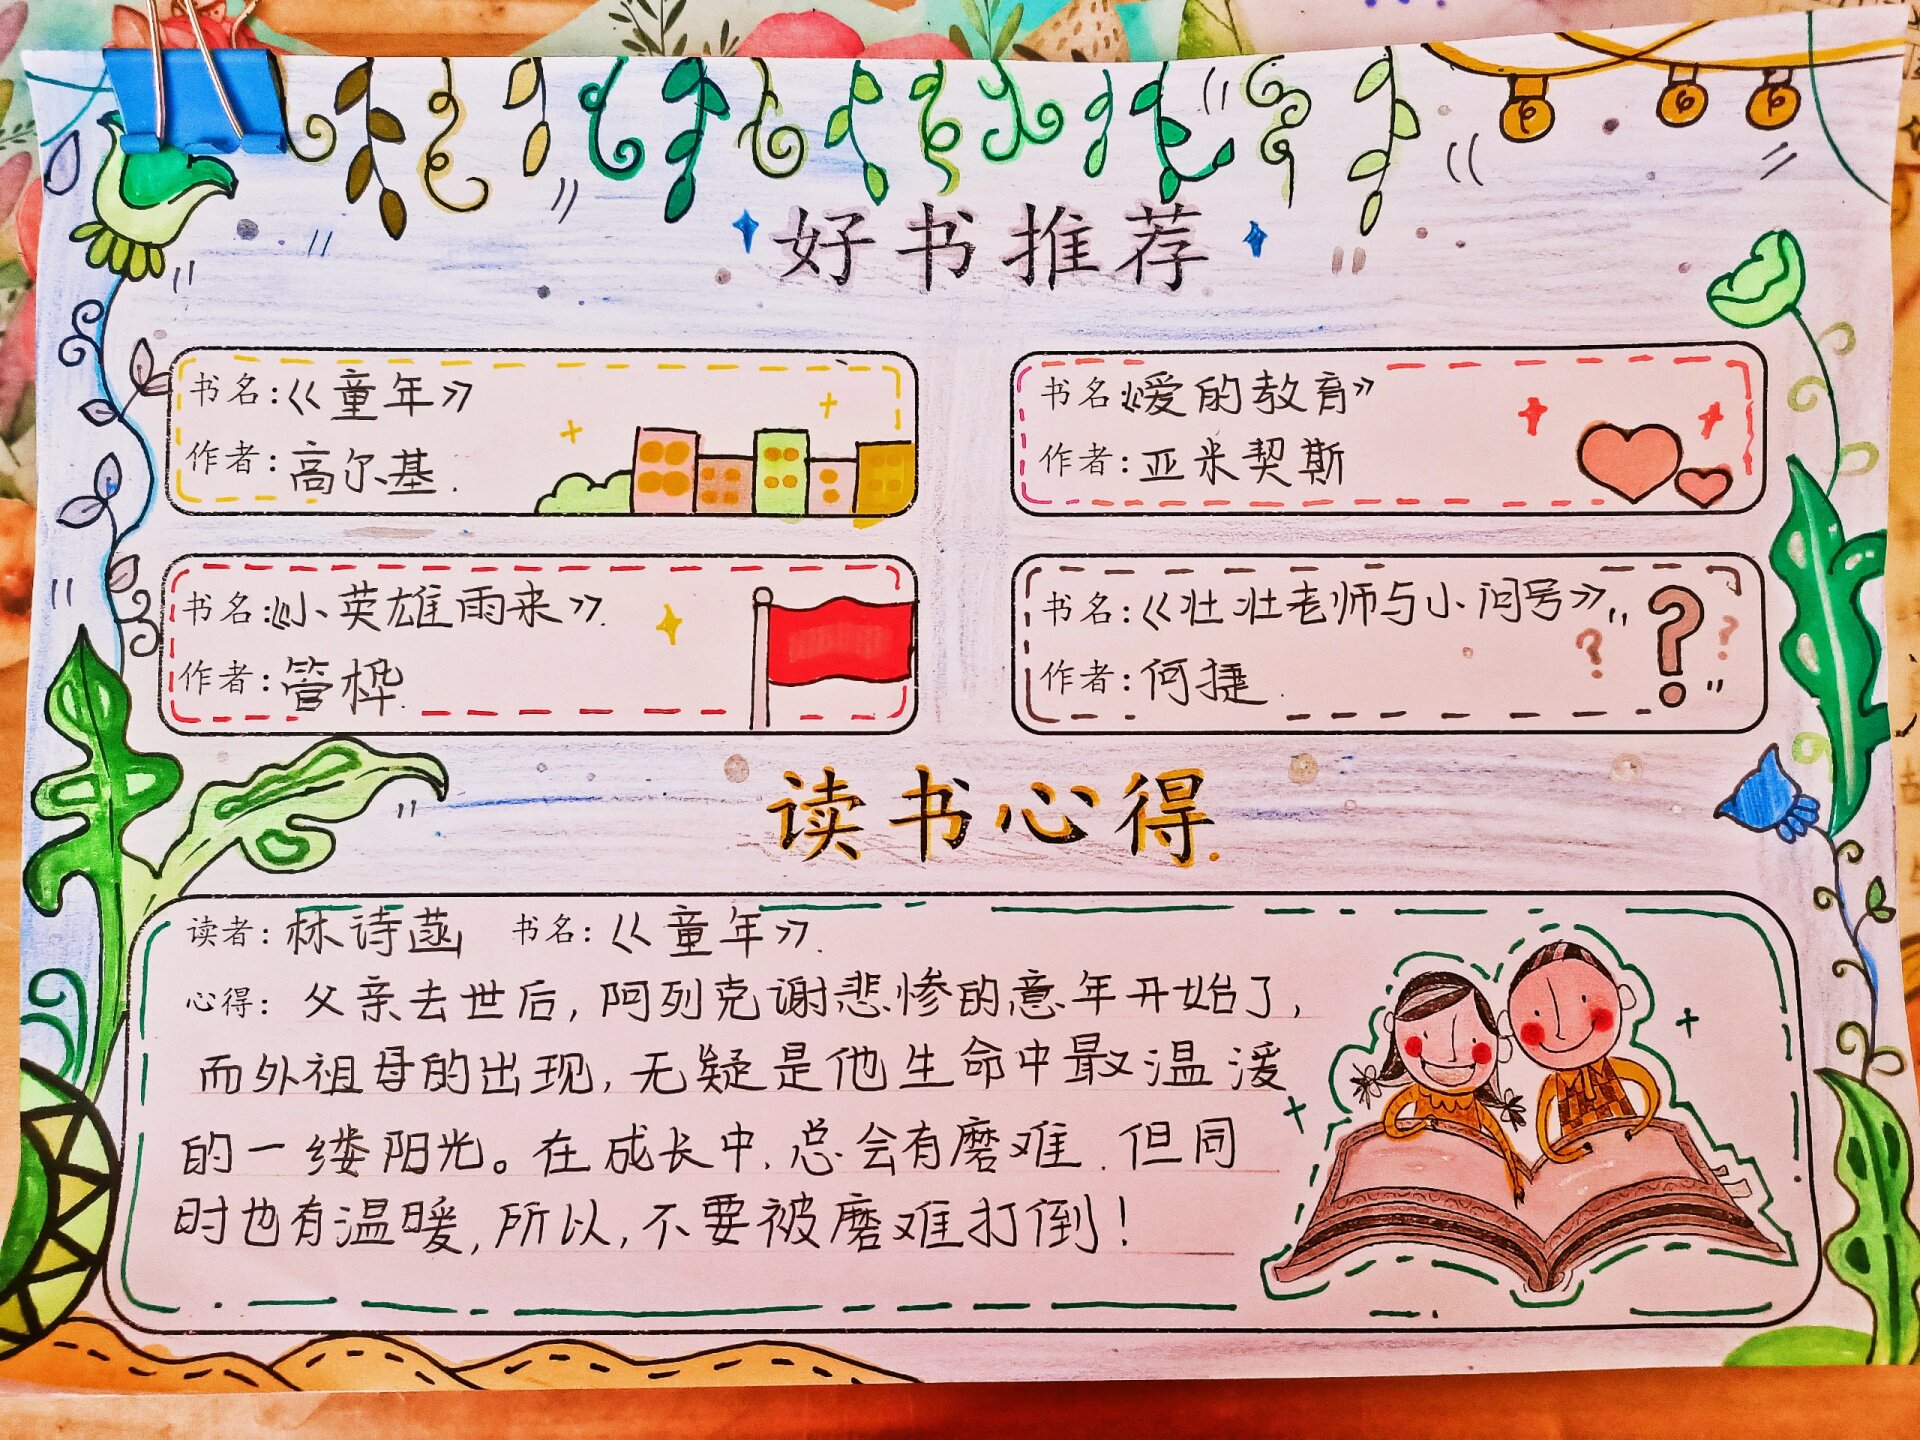 好书推荐
书名:《童年》
作者:高尔基.
书名:《爱的教育》
作者:亚米契斯
书名:《小英雄雨来》.
作者:管桦.
书名:《壮壮老师与小问号》
作者:何捷.
读书心得.
读者:林诗菡 书名:《童年》.
心得:父亲去世后,阿列克谢悲惨的意年开始了,
而外祖母的出现,无疑是他生命中最温湲
的一缕阳光。在成长中,总会有磨难.但同
时也有温暖,所以,不要被磨难打倒!